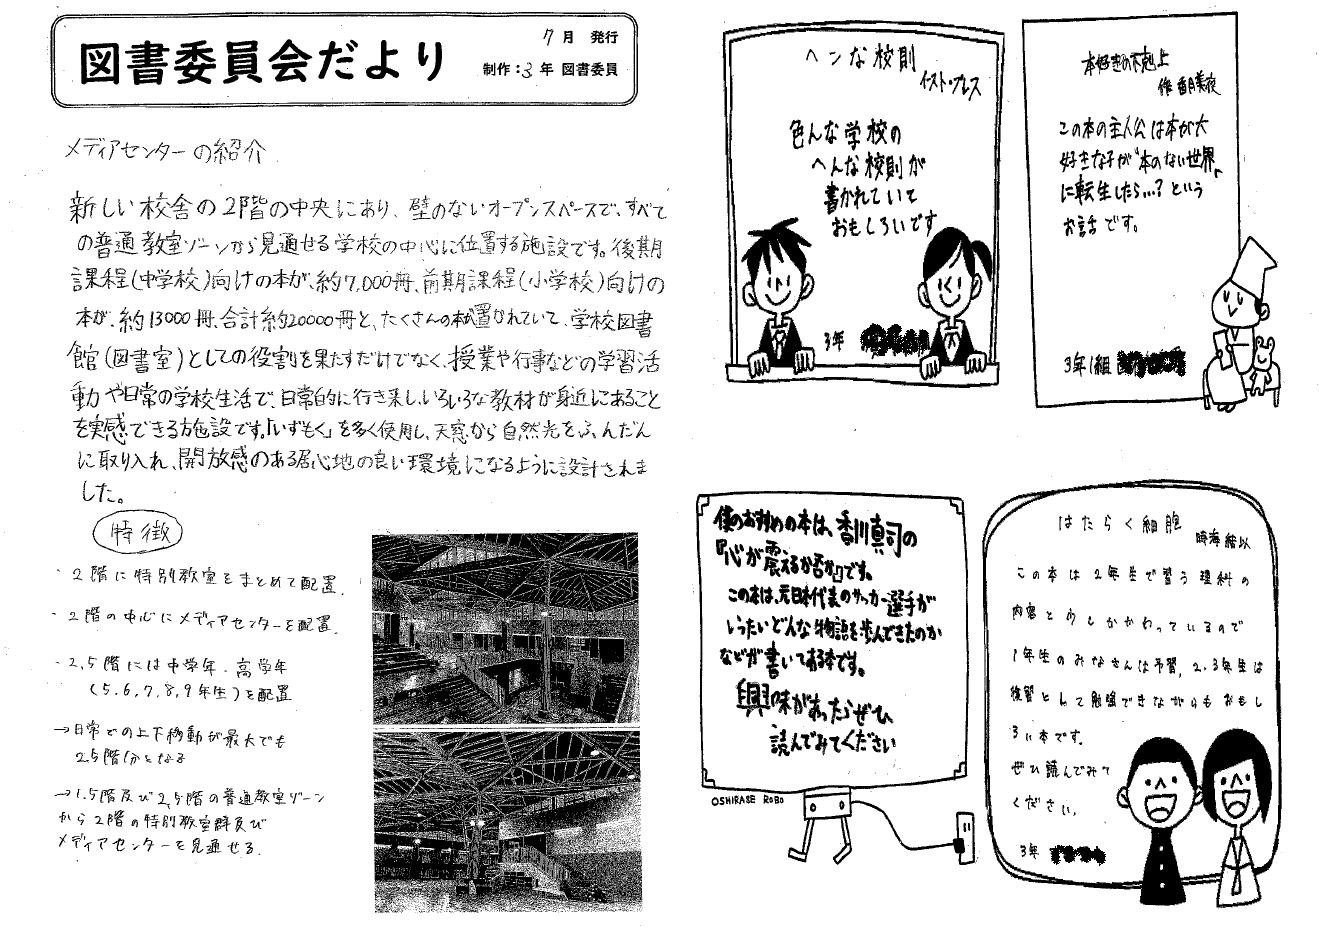 図書委員会だより
7月 発行
制作：3年 図書委員
メディアセンターの紹介
新しい校舎の2階の中央にあり、壁のないオープンスペースで、すべて
の普通教室ゾーンから見通せる学校の中心に位置する施設です。後期
課程(中学校)向けの本が、約7,000冊、前期課程(小学校)向けの
本が、約13000冊、合計約20000冊と、たくさんの本が置かれていて、学校図書
館(図書室)としての役割を果たすだけでなく、授業や行事などの学習活
動や日常の学校生活で、日常的に行き来し、いろいろな教材が身近にあること
を実感できる施設です。「いずもく」を多く使用し、天窓から自然光をふんだん
に取り入れ、開放感のある居心地の良い環境になるように設計されま
した。
特徴
・2階に特別教室をまとめて配置.
・2階の中心にメディアセンターを配置.
・2,5階には中学年・高学年
(5.6,7,8,9年生)を配置
→日常での上下移動が最大でも
2.5階分となる
→1.5階及び2,5階の普通教室ゾーン
から2階の特別教室群及び
メディアセンターを見通せる.
ヘンな校則
イースト・プレス
色んな学校の
へんな校則が
書かれていて
おもしろいです
3年
本好きの下剋上
作 香月美夜
この本の主人公は本が大
好きな子が"本のない世界"
に転生したら...?という
お話です。
3年1組
僕のおすすめの本は、香川真司の
『心が震えるか否か』です。
この本は、元日本代表のサッカー選手が
いったいどんな物語を歩んできたのか
などが書いてある本です。
興味があったらぜひ
読んでみてください
OSHIRASE ROBO
はたらく細胞
時海結以
この本は2年生で習う理科の
内容と少しかかわっているので
1年生のみなさんは予習,2.3年生は
復習として勉強できながらもおもし
ろい本です。
ぜひ読んでみて
ください。
3年